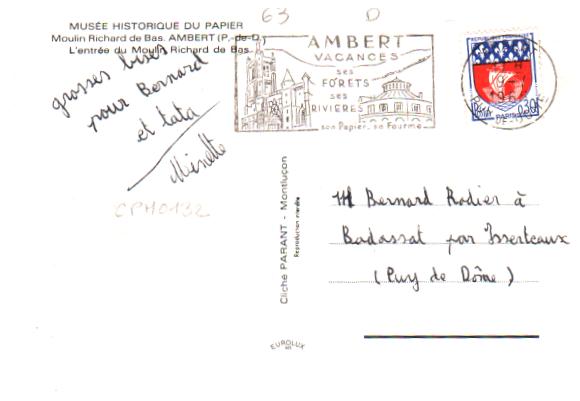 63 D
MUSÉE HISTORIQUE DU PAPIER
Moulin Richard de Bas. AMBERT (P.-de-D.)
L'entrée du Moulin Richard de Bas
grosses bises
pour Bernard
et tata
Minette
CPM0132
AMBERT
VACANCES
ses
FORETS
ses
RIVIERES
son Papier, sa Fourme
0,30
PARIS
Cliché PARANT - Montluçon
Reproduction interdite
EUROLUX
M Bernard Rodier à
Badassat par Isserteaux
(Puy de Dôme)